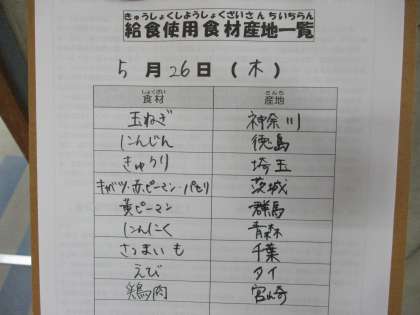 きゅうしょくしようしょくざいさんちいちらん
給食使用食材産地一覧
5月26日(木)
しょくざい さんち
食材 産地
玉ねぎ 神奈川
にんじん 徳島
きゅうり 埼玉
キャベツ・赤ピーマン・パセリ 茨城
黄ピーマン 群馬
にんにく 青森
さつまいも 千葉
えび タイ
鶏肉 宮崎